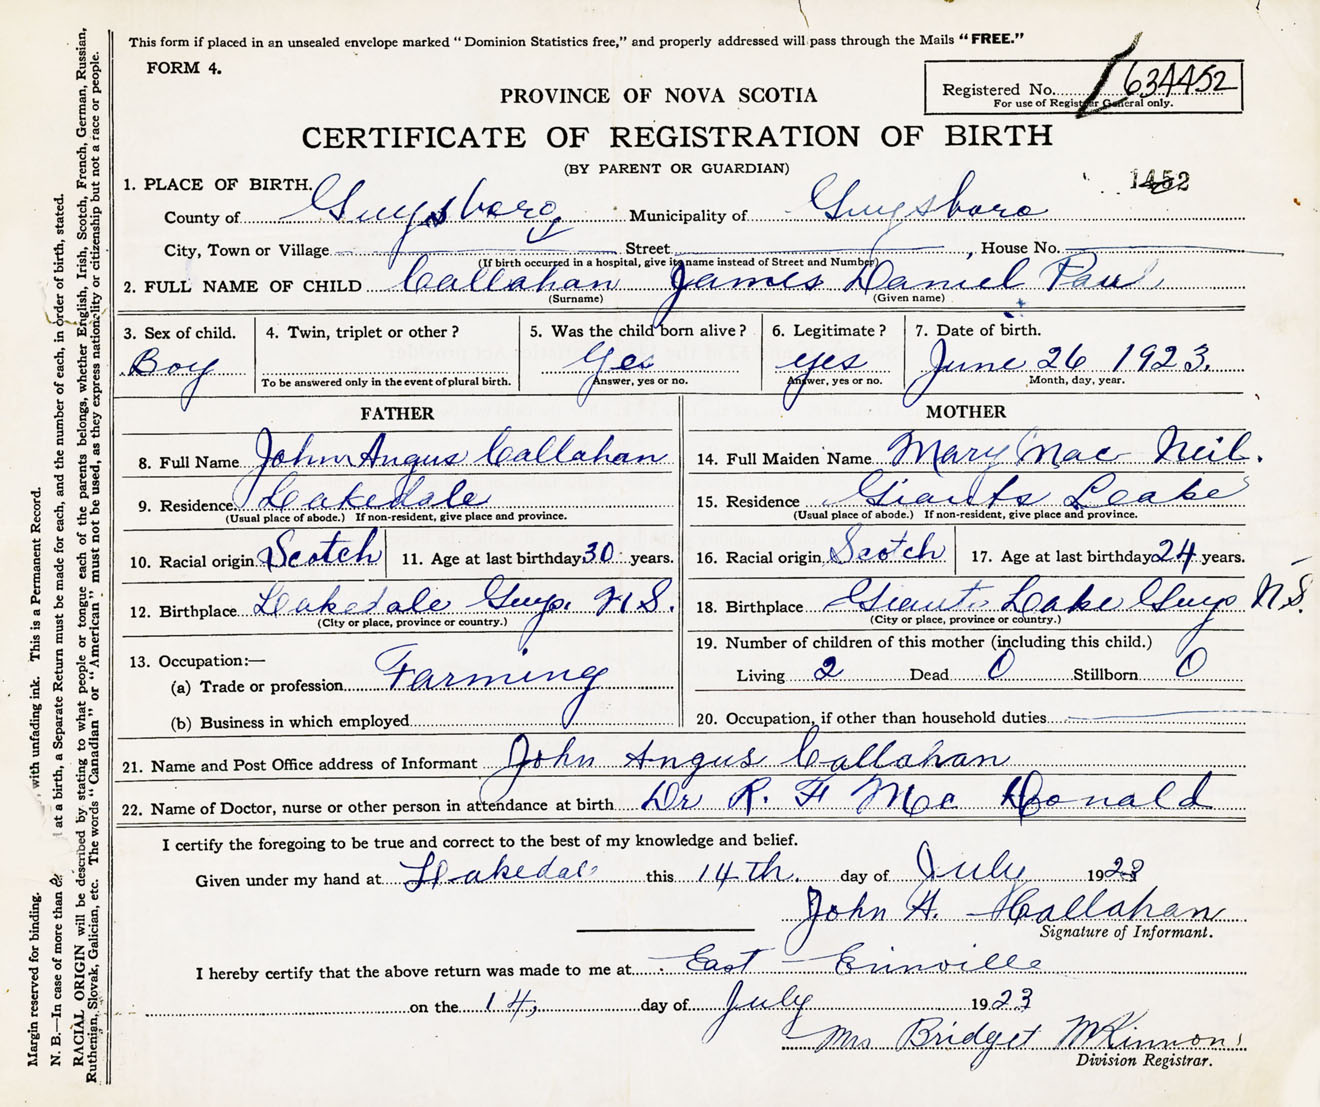 This form if placed in an unsealed envelope marked "Dominion Statistics free," and properly addressed will pass through the Mails "FREE."
FORM 4.
Registered No. 634452
For use of Register General only.
PROVINCE OF NOVA SCOTIA
CERTIFICATE OF REGISTRATION OF BIRTH
(BY PARENT OR GUARDIAN)
1452
1. PLACE OF BIRTH.
County of Guysboro Municipality of Guysboro
City, Town or Village Street , House No.
(If birth occurred in a hospital, give its name instead of Street and Number)
2. FULL NAME OF CHILD Callahan James Daniel Paul
(Surname) (Given name)
3. Sex of child. Boy
4. Twin, triplet or other?
To be answered only in the event of plural birth.
5. Was the child born alive? Yes
Answer, yes or no.
6. Legitimate? yes
Answer, yes or no.
7. Date of birth. June 26 1923.
Month, day, year.
FATHER
8. Full Name John Angus Callahan
9. Residence. Leakedale
(Usual place of abode.) If non-resident, give place and province.
10. Racial origin Scotch 11. Age at last birthday 30 years.
12. Birthplace Leakedale Guys. N.S.
(City or place, province or country.)
13. Occupation:—
(a) Trade or profession Farming
(b) Business in which employed
MOTHER
14. Full Maiden Name Mary Mac Neil.
15. Residence Giants Leake
(Usual place of abode.) If non-resident, give place and province.
16. Racial origin Scotch 17. Age at last birthday 24 years.
18. Birthplace Giants Lake Guys N.S.
(City or place, province or country.)
19. Number of children of this mother (including this child.)
Living 2 Dead 0 Stillborn 0
20. Occupation, if other than household duties
21. Name and Post Office address of Informant John Angus Callahan
22. Name of Doctor, nurse or other person in attendance at birth Dr R. F Mc Donald
I certify the foregoing to be true and correct to the best of my knowledge and belief.
Given under my hand at Leakedale this 14th. day of July 1923
John A. Callahan
Signature of Informant.
I hereby certify that the above return was made to me at East Erinville
on the 14, day of July 1923
Mrs Bridget McKinnon
Division Registrar.
Margin reserved for binding. with unfading ink. This is a Permanent Record.
N. B.—In case of more than at a birth, a Separate Return must be made for each, and the number of each, in order of birth, stated.
RACIAL ORIGIN will be described by stating to what people or tongue each of the parents belongs, whether English, Irish, Scotch, French, German, Russian,
Ruthenian, Slovak, Galician, etc. The words "Canadian" or "American" must not be used, as they express nationality or citizenship but not a race or people.